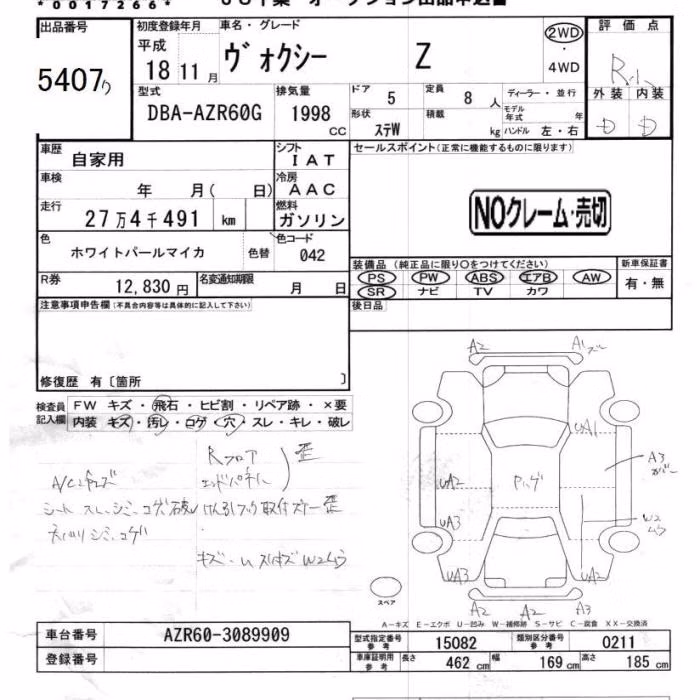 *0017266*
出品番号 初度登録年月 車名・グレード 評価点
5407 平成 18 11月 ヴォクシー Z 2WD・4WD R
型式 排気量 ドア 5 定員 8人 ディーラー・並行 外装 内装
DBA-AZR60G 1998cc 形状 ステW 積載 kg モデル年式 年 D D
ハンドル 左・右
車歴 自家用 シフト IAT セールスポイント(正常に機能するものに限ります)
車検 年 月( 日) 冷房 AAC
走行 27万4千491 km 燃料 ガソリン NOクレーム・売切
色 ホワイトパールマイカ 色替 色コード 042
装備品(純正品に限り○をつけてください) 新車保証書
PS PW ABS エアB AW 有・無
SR ナビ TV カワ
R券 12,830円 名変通知期限 月 日
後日品
注意事項申告欄(不具合内容等は具体的に記入して下さい)
修復歴 有〔箇所 〕
検査員記入欄 FW キズ・飛石・ヒビ割・リペア跡・×要
内装 キズ・汚レ・コゲ・穴・スレ・キレ・破レ
Rフロア
エンドパネル 歪
シート スレ、シミ、コゲ 破レ
シミ、コゲ
A2 A1
UA1
A3
UA2 W2
UA3
UA3 UA2
A2 A2 A3
スペア
A-キズ E-エクボ U-凹み W-補修跡 S-サビ C-腐食 XX-交換済
車台番号 AZR60-3089909
登録番号
型式指定番号 参考 15082 類別区分番号 参考 0211
車庫証明用 参考 長さ 462cm 幅 169cm 高さ 185cm